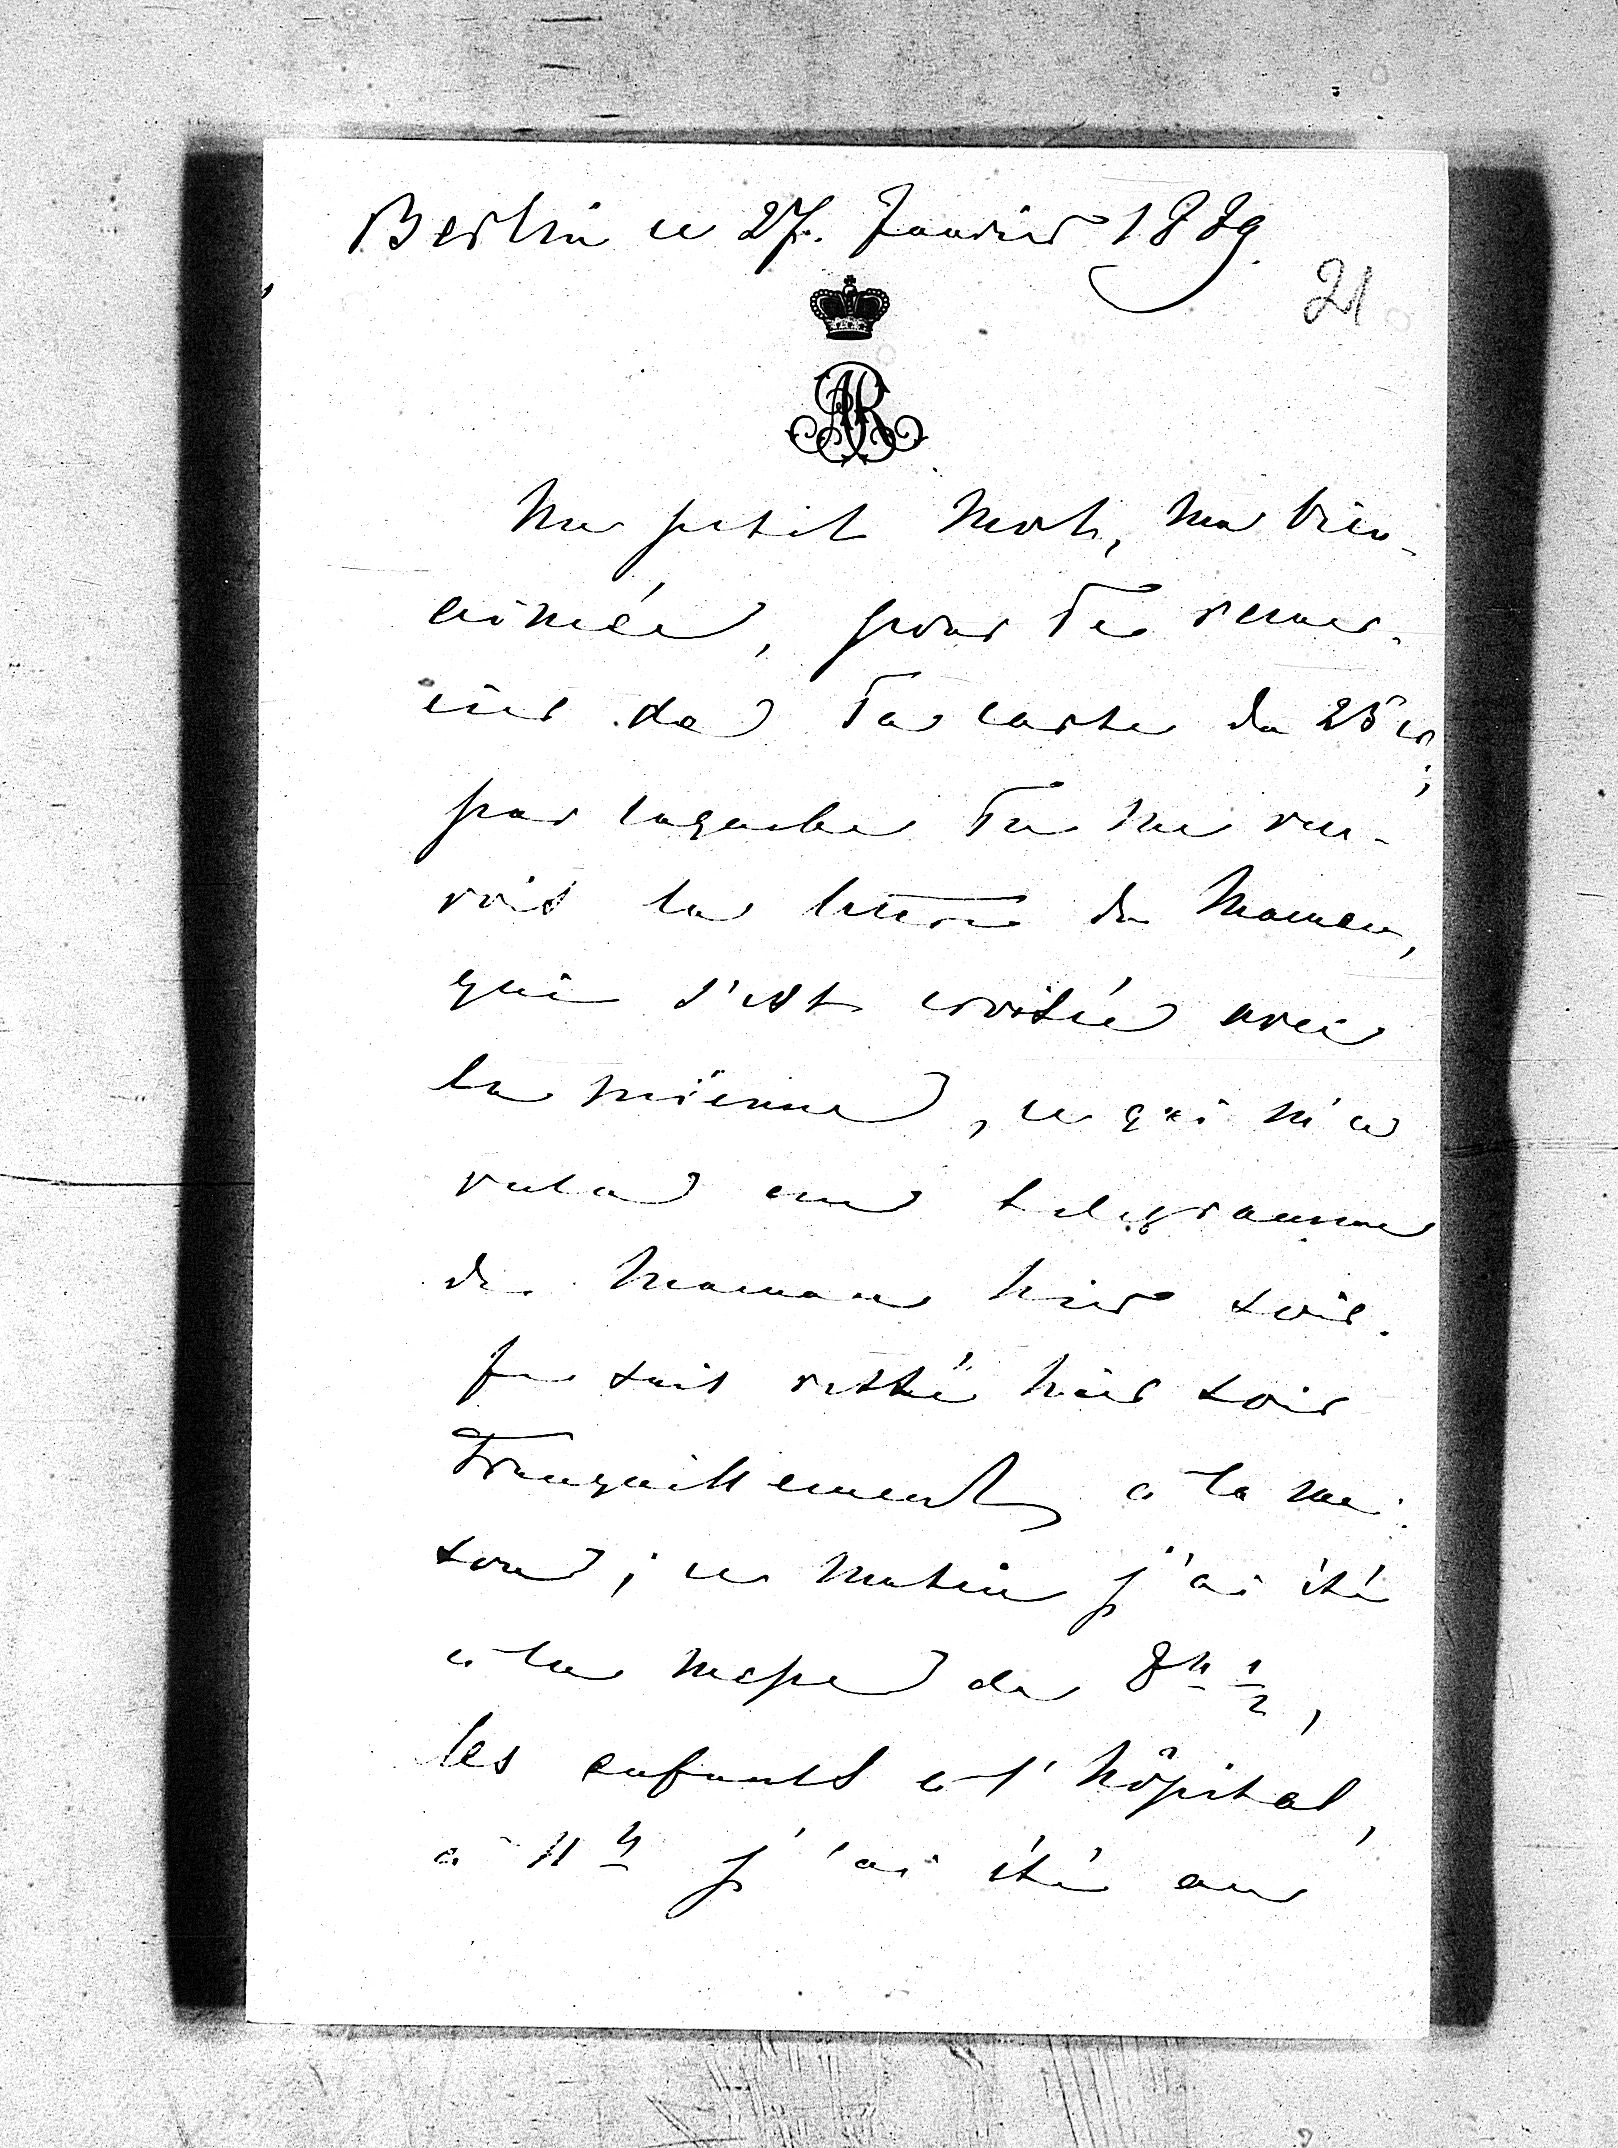 Berlin ce 27. Janvier 1889.
21
AR
Un petit mot, ma bien-
aimée, pour Te remer-
cier de Ta carte du 25 cr;
par laquelle Tu me ren-
vois la lettre de Maman,
qui s'est croisée avec
la mienne, ce qui m'a
valu un telegramme
de Maman hier soir.
Je suis resté hier soir
tranquillement à la mai-
son; ce matin j'ai été
à la messe de 8h 1/2,
les enfants à l'hôpital,
à 11h j'ai été au